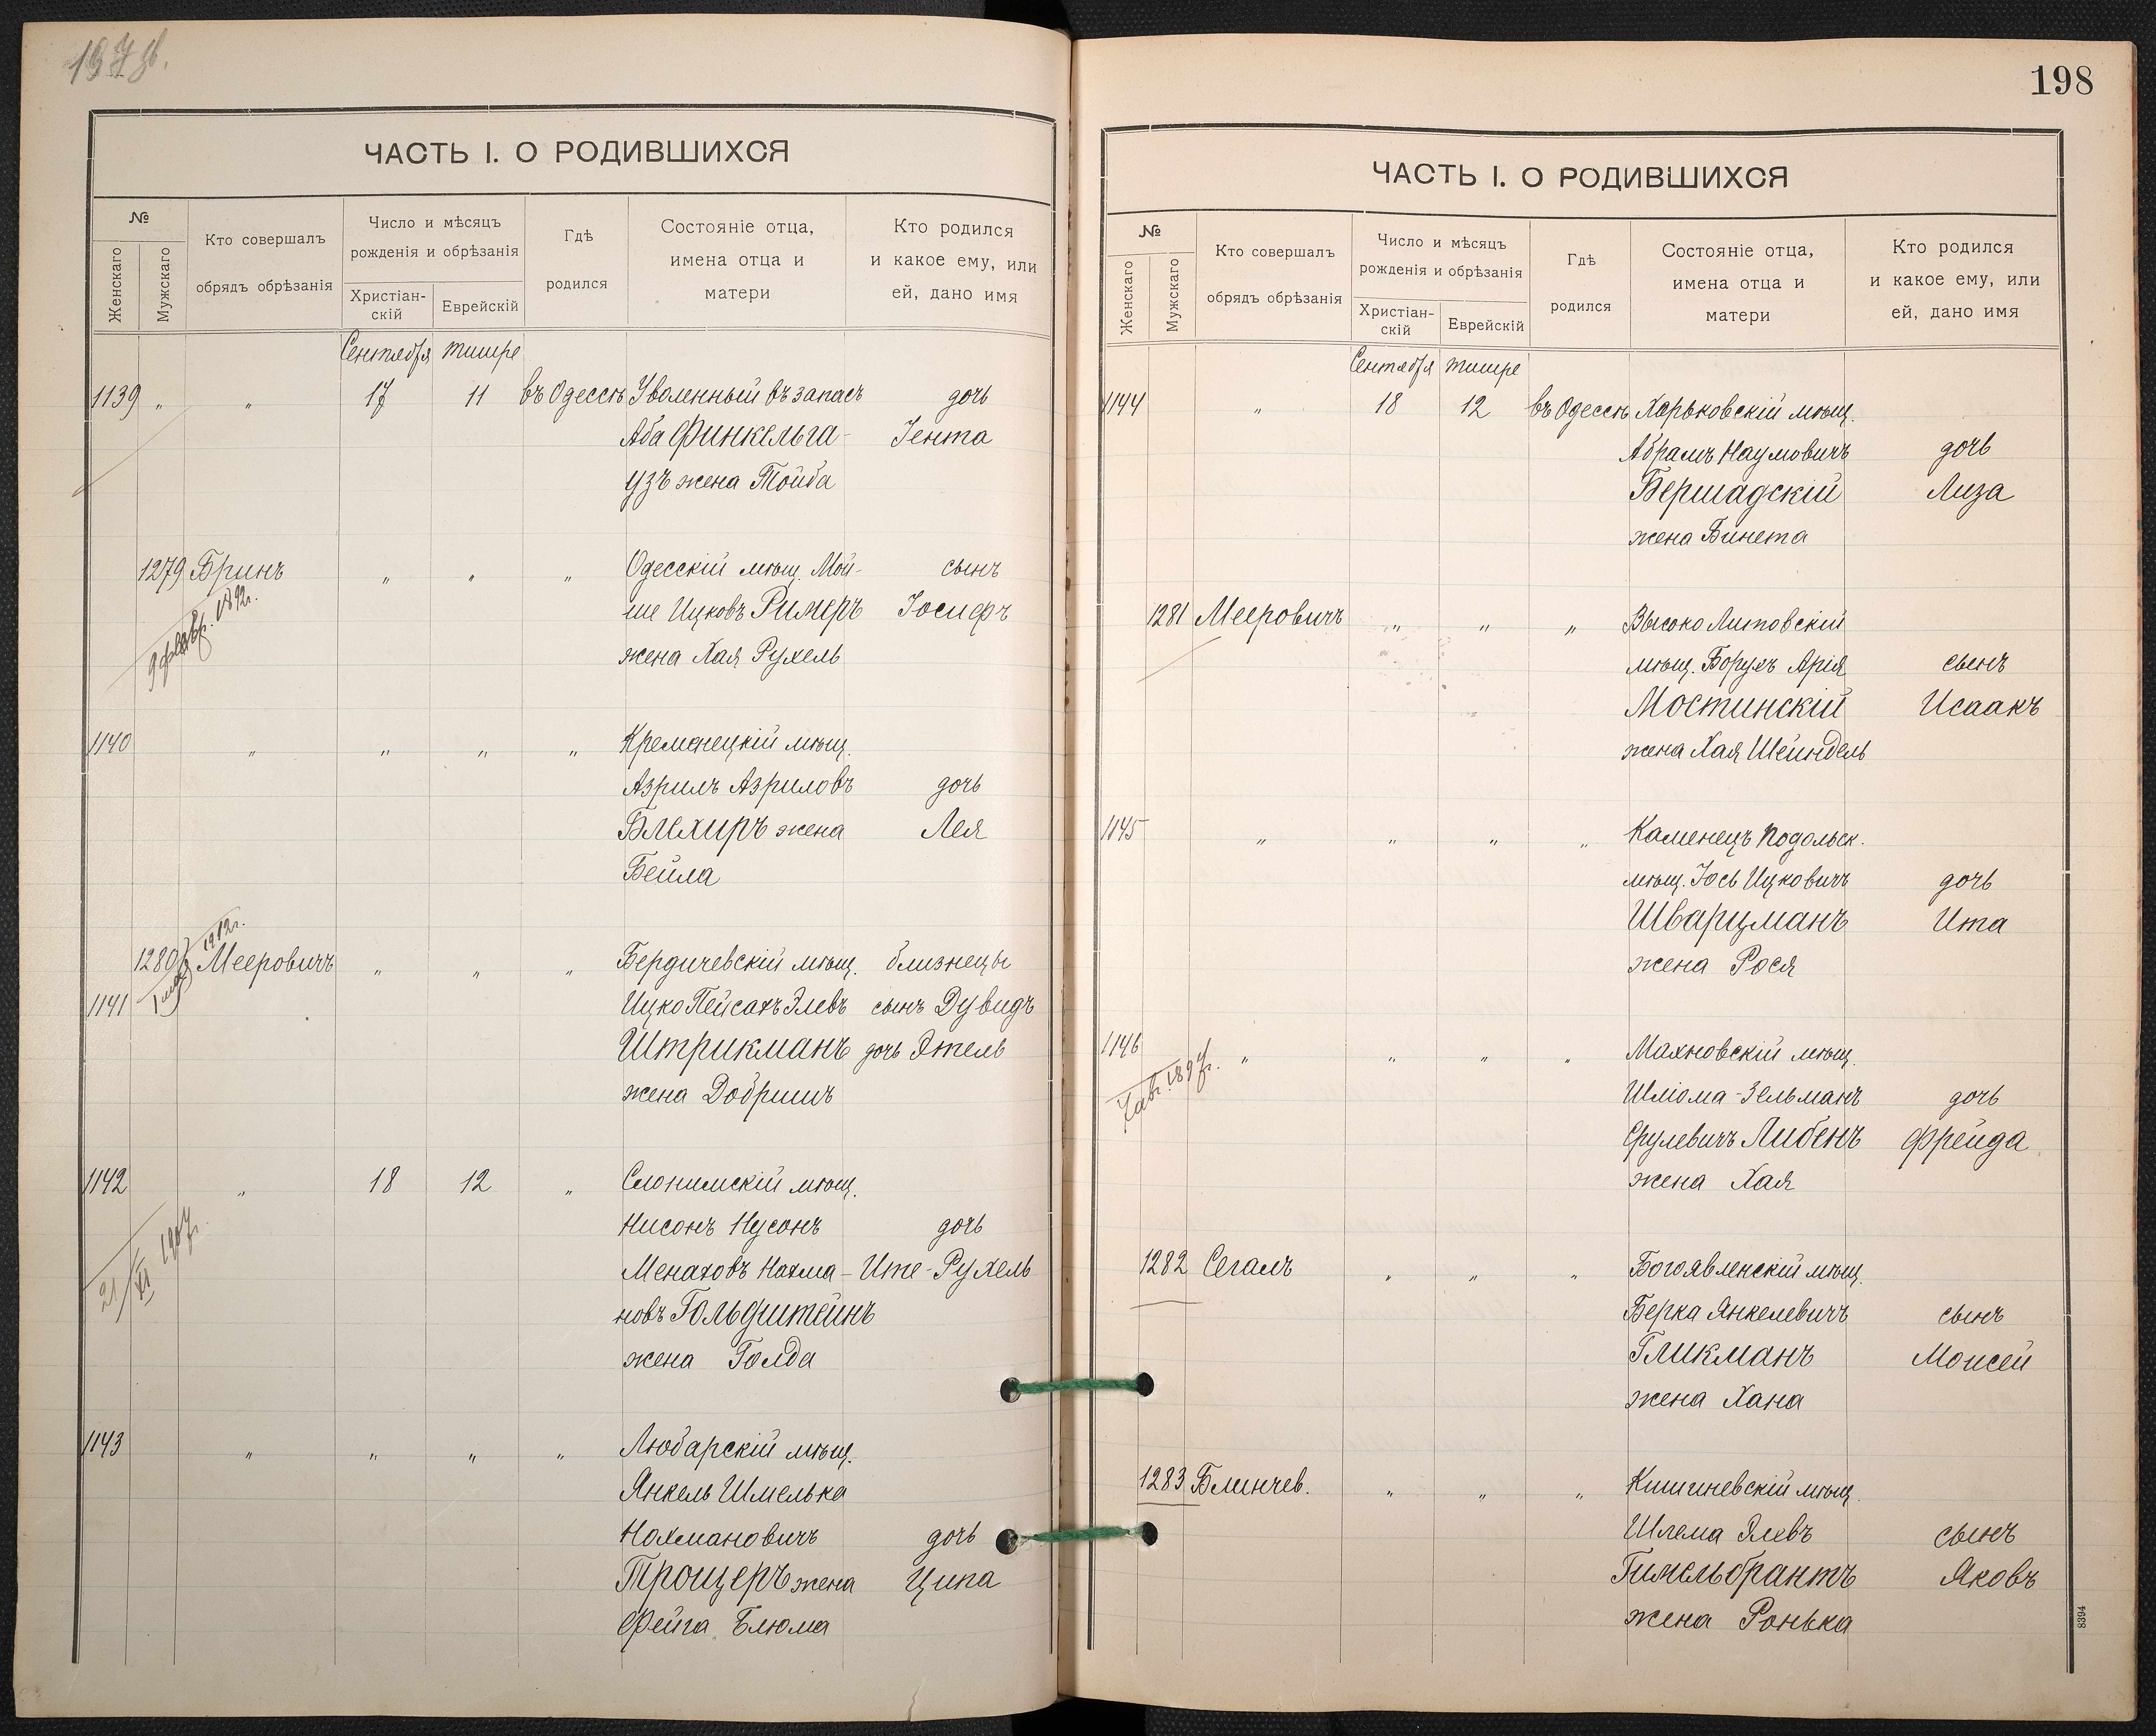 ЧАСТЬ I. О РОДИВШИХСЯ
№
Женскаго
Мужскаго
Кто совершалъ
обрядъ обрѣзанія
Число и мѣсяцъ
рожденія и обрѣзанія
Христіан-
скій
Еврейскій
Гдѣ
родился
Состояніе отца,
имена отца и
матери
Кто родился
и какое ему, или
ей, дано имя
Сентября Тишре
1139 „ „ 17 11 въ Одессѣ Уволенный въ запасъ дочь
Аба Финкельга- Іента
узъ жена Тойба
1279 Бринъ „ „ „ Одесскій мѣщ. Мой- сынъ
ше Ицковъ Римеръ Іосифъ
9 февр. 1892г.
жена Хая Рухель
1140 „ „ „ „ Кременецкій мѣщ.
Азрилъ Азриловъ дочь
Блехиръ жена Лея
Бейла
1912г.
1280 Мееровичъ „ „ „ Бердичевскій мѣщ. близнецы
1141 Ицко Пейсахъ Элевъ сынъ Дувидъ
Штрикманъ дочь Этель
жена Добришъ
1142 „ 18 12 „ Слонимскій мѣщ.
Нисонъ Нусонъ дочь
21/XI 1907г.
Менаховъ Нахма- Ите-Рухель
новъ Гольдштейнъ
жена Голда
1143 „ „ „ „ Любарскій мѣщ.
Янкель Шмелька
Нахмановичъ дочь
Трощеръ жена Ципа
Фейга Блюма
198
ЧАСТЬ I. О РОДИВШИХСЯ
№
Женскаго
Мужскаго
Кто совершалъ
обрядъ обрѣзанія
Число и мѣсяцъ
рожденія и обрѣзанія
Христіан-
скій
Еврейскій
Гдѣ
родился
Состояніе отца,
имена отца и
матери
Кто родился
и какое ему, или
ей, дано имя
Сентября Тишре
1144 „ 18 12 въ Одессѣ Харьковскій мѣщ.
Абрамъ Наумовичъ дочь
Бершадскій Лиза
жена Бинета
1281 Мееровичъ „ „ „ Высоко Литовскій
мѣщ. Борухъ Арія сынъ
Мостинскій Исаакъ
жена Хая Шейндель
1145 „ „ „ „ Каменецъ Подольск.
мѣщ. Іось Ицковичъ дочь
Шварцманъ Ита
жена Рося
1146 „ „ „ „ Махновскій мѣщ.
Шліома-Зельманъ дочь
Срулевичъ Либенъ Фрейда
жена Хая
1282 Сегалъ „ „ „ Богоявленскій мѣщ.
Берка Янкелевичъ сынъ
Гликманъ Моисей
жена Хана
1283 Блинчев. „ „ „ Кишиневскій мѣщ.
Шлема Элевъ сынъ
Гимельбрантъ Яковъ
жена Ронька
8394